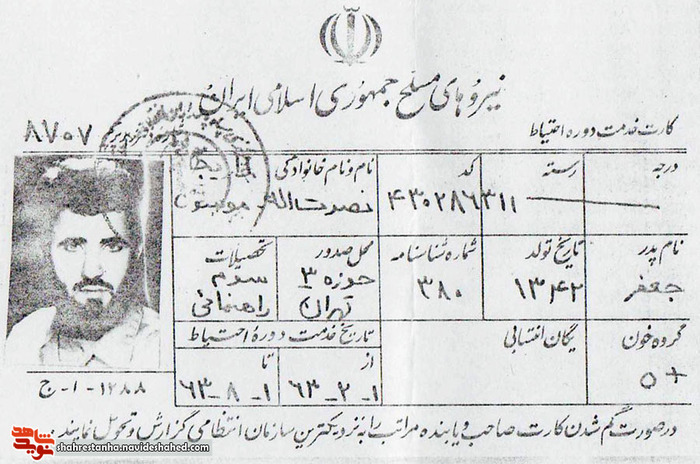 نیروهای مسلح جمهوری اسلامی ایران
کارت خدمت دوره احتیاط
۸۷۰۷
درجه
رسته
کد
نام و نام خانوادگی
۳۱۱
۴۳۰۲۸۶
نصرت اله
نام پدر
تاریخ تولد
شماره شناسنامه
محل صدور
تحصیلات
جعفر
۱۳۴۲
۳۸۰
حوزه ۳
تهران
سوم
راهنمائی
گروه خون
یگان انتسابی
تاریخ خدمت دوره احتیاط
از
تا
O+
۶۳-۲-۱
۶۳-۸-۱
۱۲۸۸-۱-ج
در صورت گم شدن کارت صاحب و یابنده مراتب را به نزدیکترین سازمان انتظامی گزارش و تحویل نمایند.
نوید شاهد
shahrestanha.navideshahed.com